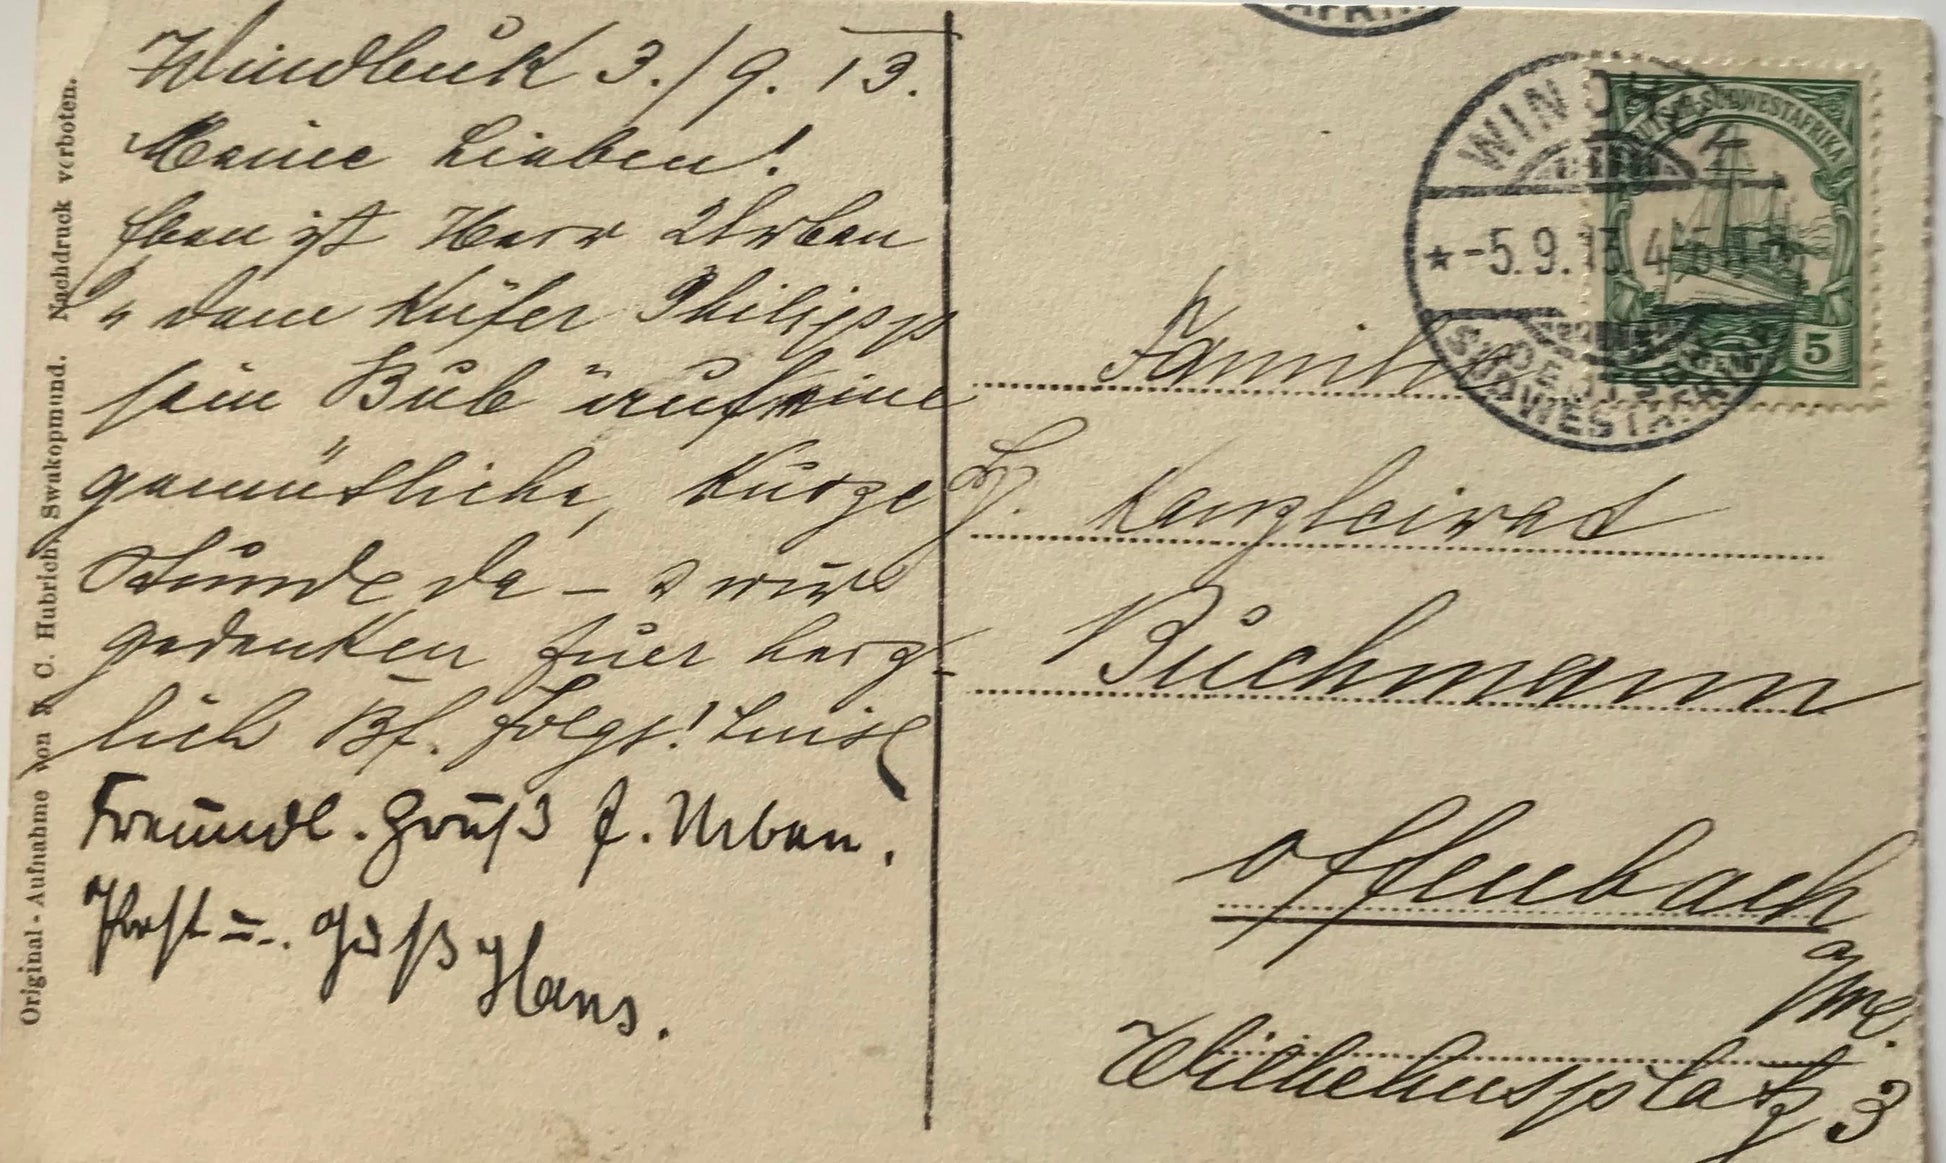 Windhuk 3./9. 13.
Meine Lieben!
Eben ist Herr Urban
„dem Küfer Philipp
sein Bub" auf eine
gemütliche, kurze
Stunde da – wir
gedenken Euer herz-
lich Bf. folgt! Luise
Freundl. Gruß f. Urban.
Prost u. Gruß Hans.
Original-Aufnahme von F. C. Hubrich, Swakopmund. Nachdruck verboten.
AFRIKA
WINDHUK
* -5.9.13 4-5 N *
DEUTSCH-
SÜDWESTAFRIKA
DEUTSCH-SÜDWESTAFRIKA
5 PFENNIG 5
Familie
Kanzleirat
Buchmann
Offenbach
a/M.
Wilhelmsplatz 3